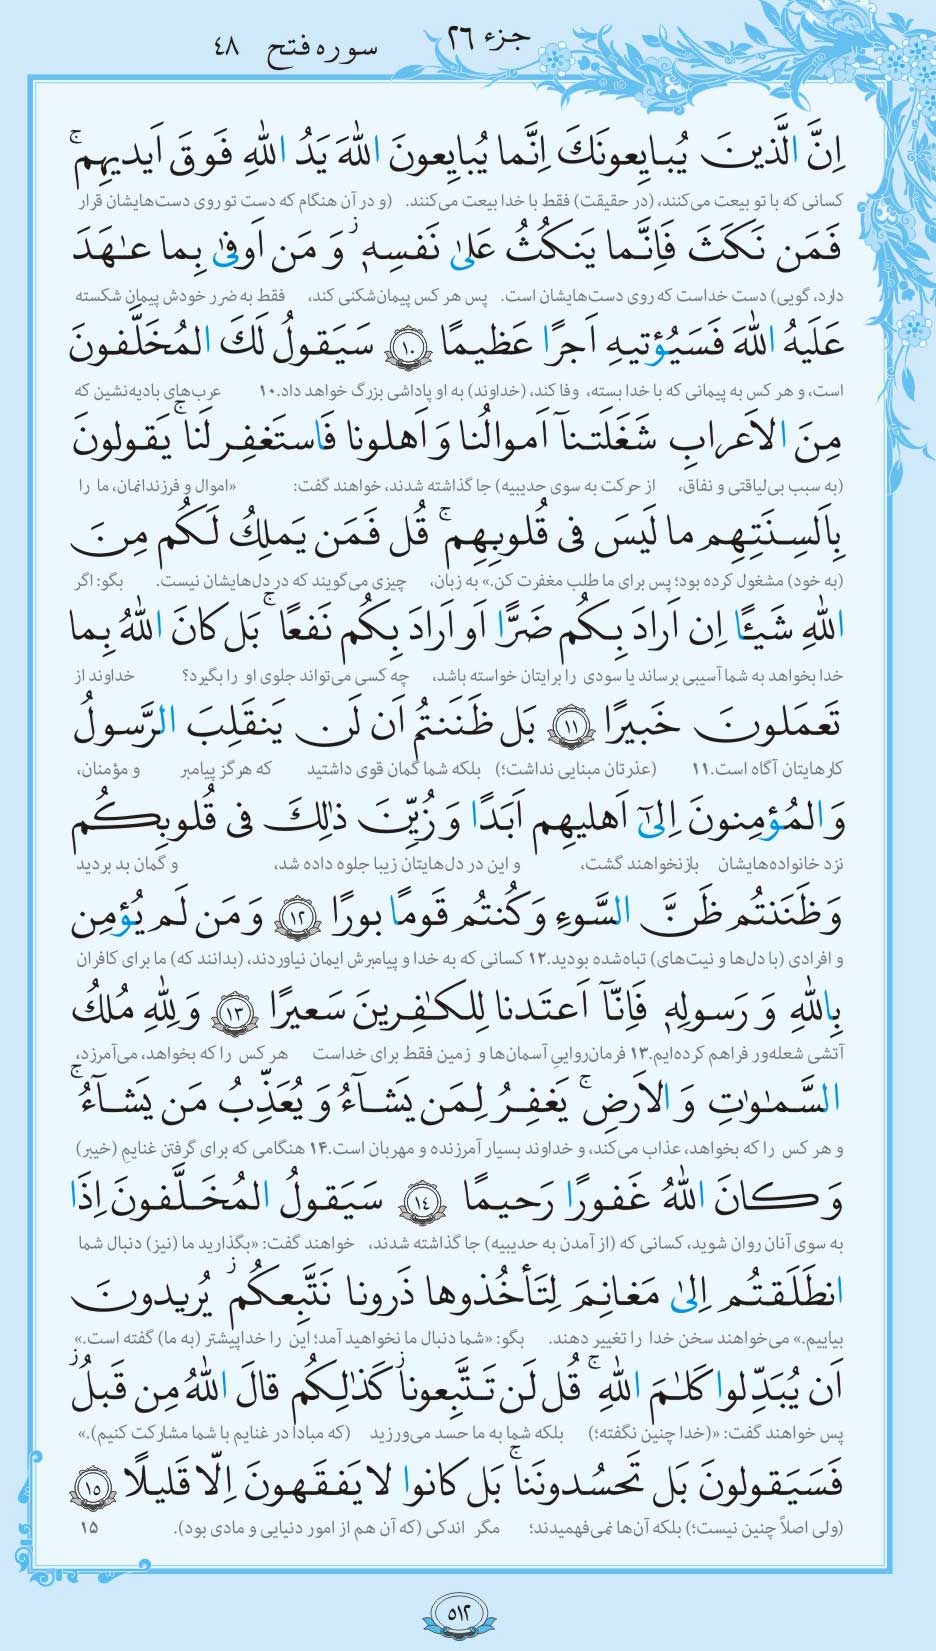 جزء ۲۶
سوره فتح ۴۸
اِنَّ الَّذینَ یُبایِعونَکَ اِنَّما یُبایِعونَ اللهَ یَدُ اللهِ فَوقَ اَیدیهِم ۚ
کسانی که با تو بیعت می‌کنند، (در حقیقت) فقط با خدا بیعت می‌کنند. (و در آن هنگام که دست تو روی دست‌هایشان قرار
فَمَن نَکَثَ فَاِنَّما یَنکُثُ عَلیٰ نَفسِهٖ ۖ وَ مَن اَوفیٰ بِما عٰهَدَ
دارد، گویی) دست خداست که روی دست‌هایشان است. پس هر کس پیمان‌شکنی کند، فقط به ضرر خودش پیمان شکسته
عَلَیهُ اللهَ فَسَیُؤتیهِ اَجرًا عَظیمًا ۱۰ سَیَقولُ لَکَ المُخَلَّفونَ
است، و هر کس به پیمانی که با خدا بسته، وفا کند، (خداوند) به او پاداشی بزرگ خواهد داد.۱۰ عرب‌های بادیه‌نشین که
مِنَ الاَعرابِ شَغَلَتنآ اَموالُنا وَ اَهلونا فَاستَغفِر لَنا ۚ یَقولونَ
(به سبب بی‌لیاقتی و نفاق، از حرکت به سوی حدیبیه) جا گذاشته شدند، خواهند گفت: «اموال و فرزندانمان، ما را
بِاَلسِنَتِهِم ما لَیسَ فی قُلوبِهِم ۚ قُل فَمَن یَملِکُ لَکُم مِنَ
(به خود) مشغول کرده بود؛ پس برای ما طلب مغفرت کن.» به زبان، چیزی می‌گویند که در دل‌هایشان نیست. بگو: اگر
اللهِ شَیئًا اِن اَرادَ بِکُم ضَرًّا اَو اَرادَ بِکُم نَفعًا ۚ بَل کانَ اللهُ بِما
خدا بخواهد به شما آسیبی برساند یا سودی را برایتان خواسته باشد، چه کسی می‌تواند جلوی او را بگیرد؟ خداوند از
تَعمَلونَ خَبیرًا ۱۱ بَل ظَنَنتُم اَن لَن یَنقَلِبَ الرَّسولُ
کارهایتان آگاه است.۱۱ (عذرتان مبنایی نداشت؛) بلکه شما گمان قوی داشتید که هرگز پیامبر و مؤمنان،
وَالمُؤمِنونَ اِلیٰٓ اَهلیهِم اَبَدًا وَ زُیِّنَ ذٰلِکَ فی قُلوبِکُم
نزد خانواده‌هایشان بازنخواهند گشت، و این در دل‌هایتان زیبا جلوه داده شد، و گمان بد بردید
وَ ظَنَنتُم ظَنَّ السَّوءِ وَ کُنتُم قَومًا بورًا ۱۲ وَ مَن لَم یُؤمِن
و افرادی (با دل‌ها و نیت‌های) تباه‌شده بودید.۱۲ کسانی که به خدا و پیامبرش ایمان نیاوردند، (بدانند که) ما برای کافران
بِاللهِ وَ رَسولِهٖ فَاِنّآ اَعتَدنا لِلکٰفِرینَ سَعیرًا ۱۳ وَ لِلّٰهِ مُلکُ
آتشی شعله‌ور فراهم کرده‌ایم.۱۳ فرمان‌روایی آسمان‌ها و زمین فقط برای خداست هر کس را که بخواهد، می‌آمرزد،
السَّمٰوٰتِ وَ الاَرضِ ۚ یَغفِرُ لِمَن یَشآءُ وَ یُعَذِّبُ مَن یَشآءُ ۚ
و هر کس را که بخواهد، عذاب می‌کند، و خداوند بسیار آمرزنده و مهربان است.۱۴ هنگامی که برای گرفتن غنایم (خیبر)
وَ کانَ اللهُ غَفورًا رَحیمًا ۱۴ سَیَقولُ المُخَلَّفونَ اِذَا
به سوی آنان روان شوید، کسانی که (از آمدن به حدیبیه) جا گذاشته شدند، خواهند گفت: «بگذارید ما (نیز) دنبال شما
انطَلَقتُم اِلیٰ مَغانِمَ لِتَأخُذوها ذَرونا نَتَّبِعکُم ۖ یُریدونَ
بیاییم.» می‌خواهند سخن خدا را تغییر دهند. بگو: «شما دنبال ما نخواهید آمد؛ این را خدا پیشتر (به ما) گفته است.»
اَن یُبَدِّلوا کَلٰمَ اللهِ ۚ قُل لَن تَتَّبِعونا کَذٰلِکُم قالَ اللهُ مِن قَبلُ ۖ
پس خواهند گفت: «(خدا چنین نگفته؛) بلکه شما به ما حسد می‌ورزید (که مبادا در غنایم با شما مشارکت کنیم).»
فَسَیَقولونَ بَل تَحسُدونَنا ۚ بَل کانوا لا یَفقَهونَ اِلّا قَلیلًا ۱۵
(ولی اصلاً چنین نیست؛) بلکه آن‌ها نمی‌فهمیدند؛ مگر اندکی (که آن هم از امور دنیایی و مادی بود). ۱۵
۵۱۲